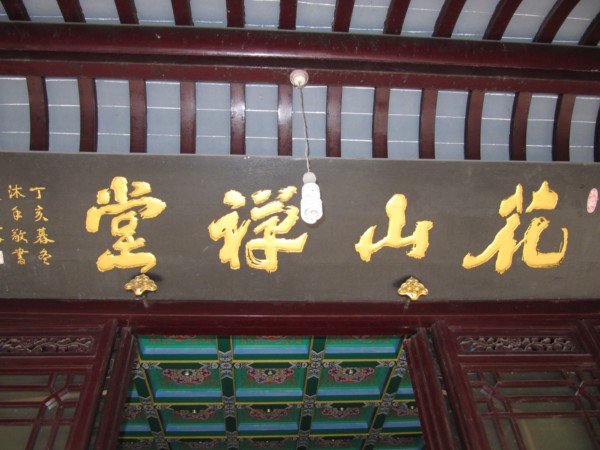 花山禅堂
丁亥暮冬
沐手敬書